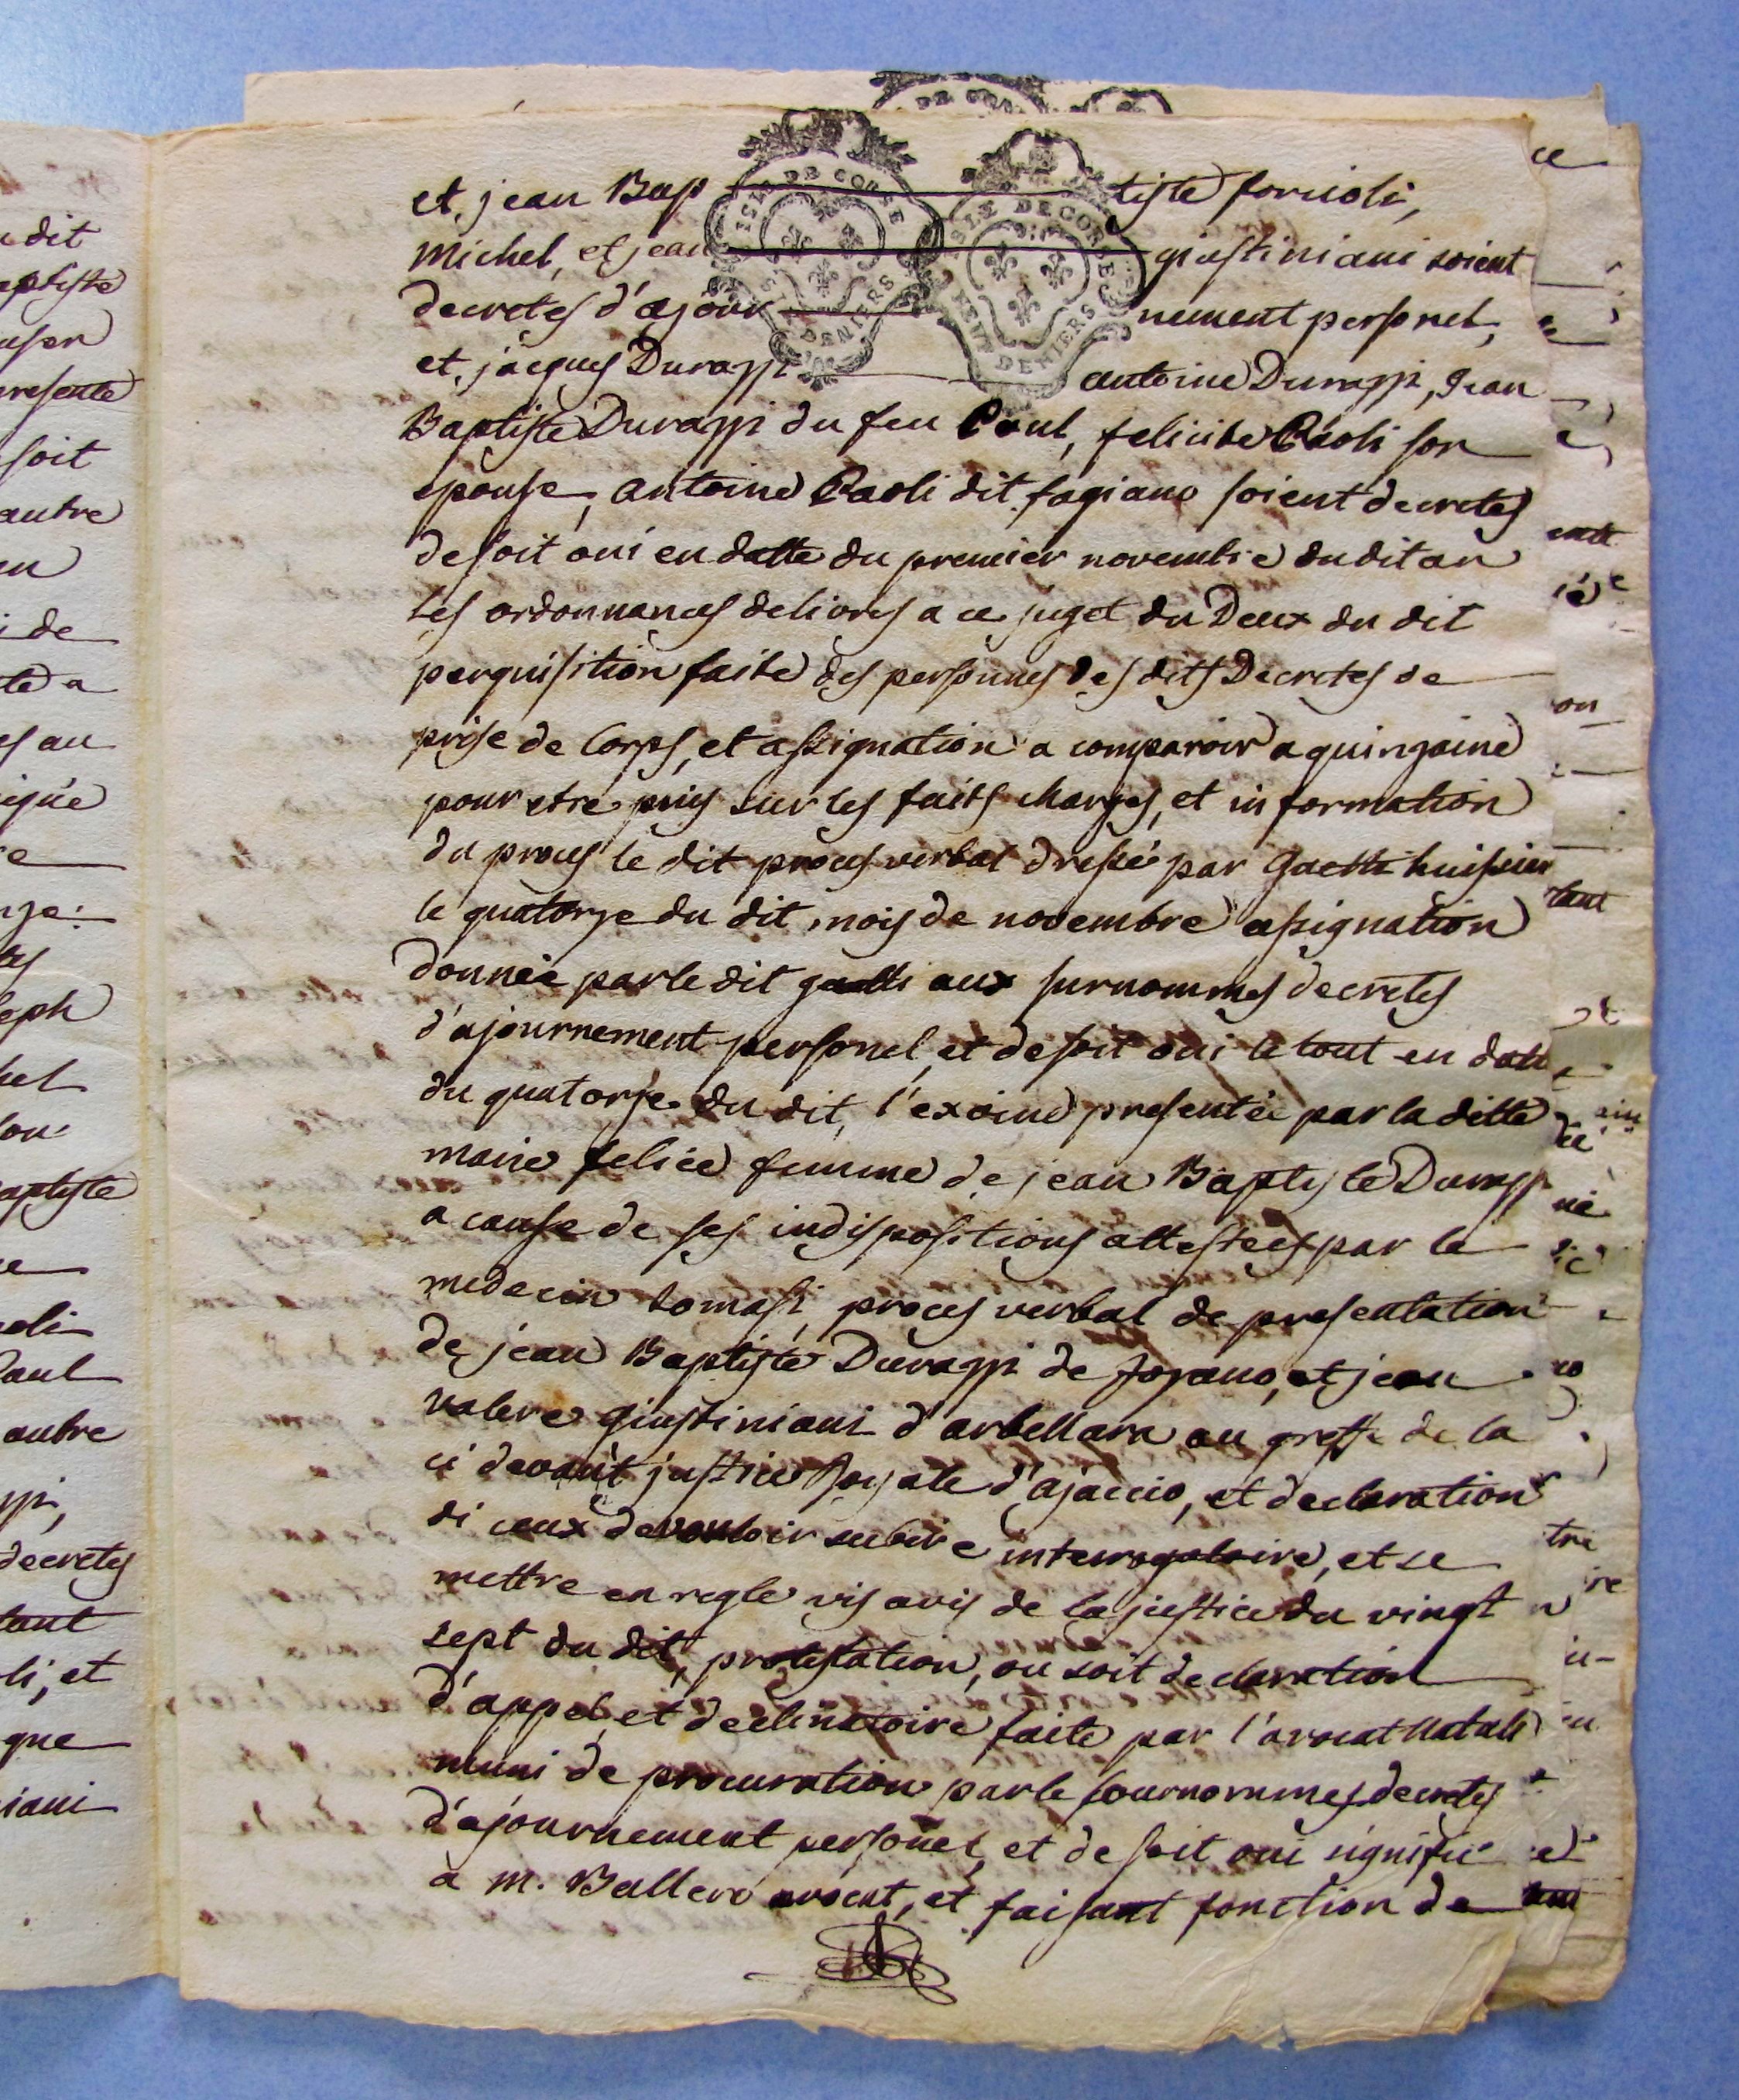 et, jean Bap tiste forcioli,
Michel, et jean giustiniani soient
decretes d'ajour nement personel,
et, jacques Durazzi antoine Durazzi, Jean
Baptiste Durazzi du feu Paul, felicite Paoli son
epouse, antoine Paoli dit fagiano soient decretes
de soit oui en datte du premier novembre du dit an
les ordonnances delivres a ce sujet du Deux du dit
perquisition faite des personnes des dits Decretes de
prise de Corps, et assignation a comparoir a quinzaine
pour etre puis sur les faits charges, et information
du proces le dit proces verbal dressé par Gaetti huissier
le quatorze du dit mois de novembre assignation
donnée par le dit gaetti aux surnommes decretes
d'ajournement personel, et de soit oui le tout en datte
du quatorze du dit, l'exoine presentée par la ditte
marie felice femme de jean Baptiste Durazzi
a cause de ses indispositions attestees par le
medecin tomasi, proces verbal de presentation
de jean Baptiste Durazzi de fozano, et jean
valere giustiniani d'arbellara au greffe de la
ci devant justice Royale d'ajaccio, et declaration
di ceux de vouloir subire interrogatoire, et se
mettre en regle vis avis de la justice du vingt
sept du dit, protestation, ou soit declaration
d'appel, et declinatoire faite par l'avocat Natali
muni de procuration par le sournommes decretes
d'ajournement personel, et de soit oui signifié
a M. Ballero avocat, et faisant fonction de
ISLE DE CORSE
DENIERS
ISLE DE CORSE
NEUF DENIERS
dit
presente
soit
autre
de
Paul
autre
decretes
tant
et
que